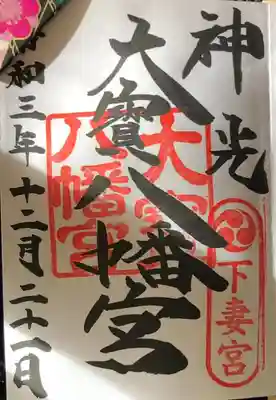 神光
下妻宮
大寳八幡宮
大宝
八幡宮
令和三年十二月二十一日